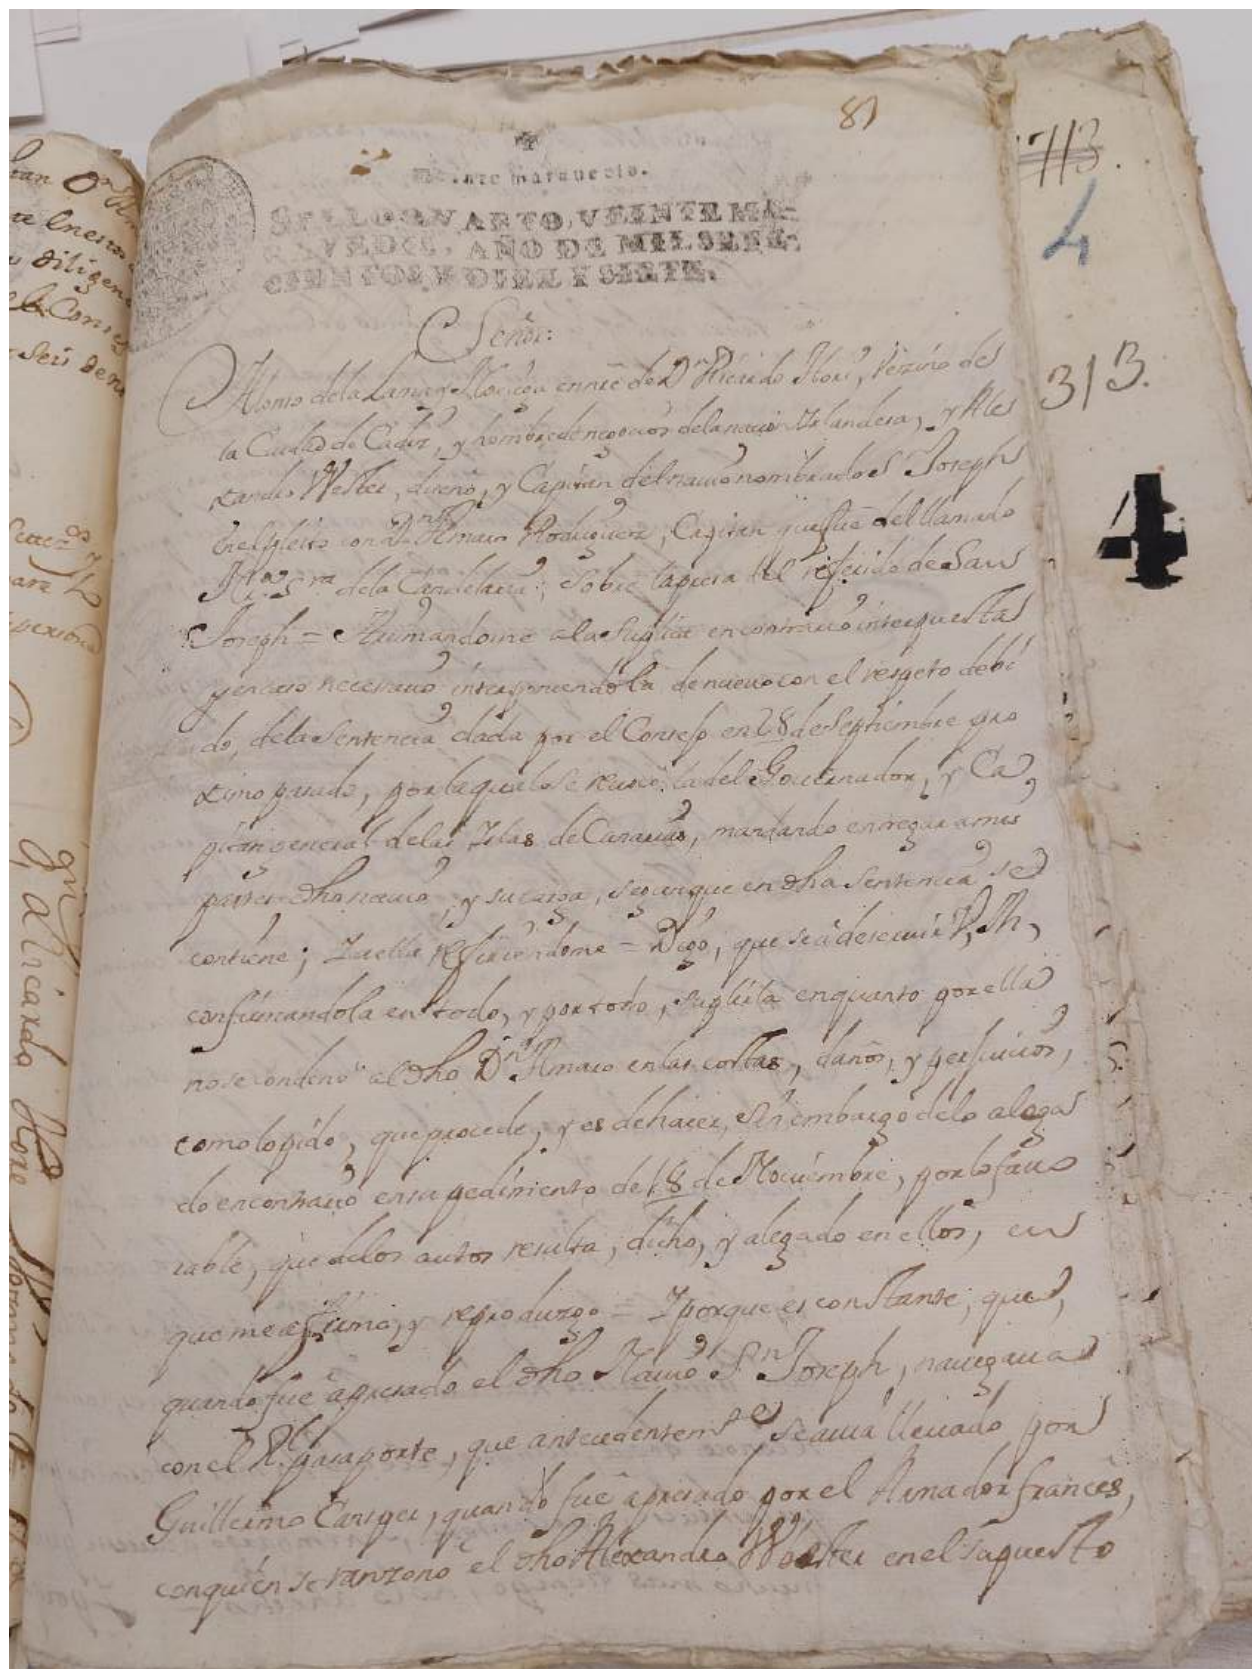 81
Veinte maravedis.
SELLO QVARTO, VEINTE MARA-
VEDIS, AÑO DE MIL SETE-
CIENTOS Y DIEZ Y SIETE.
Señor:
Alonso de la Lama y Noriega en nre de Dn Ricardo Hore, Vezino de
la Ciudad de Cadiz, y hombre de negocios de la nacion Irlandesa, y Ale
xandro Welter, dueño, y Capitan del navio nombrado Sn Joseph
en el pleito con Dn Amaro Rodriguez, Capitan que fue del llamado
Nra Sra de la Candelaria; sobre la presa del referido de San
Joseph = Afirmandome a la suplica en contrario interpuesta
y en caso necesario interponiendola de nuevo con el respeto debi
do, de la sentencia dada por el Consejo en 28 de Septiembre pro
ximo pasado, por la qual se revocó la del Governador, y Ca
pitan general de las Islas de Canarias, mandando entregar a mis
partes dho navio, y su carga, segun que en dha sentencia se
contiene; Y a ella refiriendome = Digo, que se a de servir V. A.
confirmandola en todo, y por todo, suplirla en quanto por ella
no se condenó al dho Dn Amaro en las costas, daños, y perjuicios,
como lo pido, que procede, y es de hacer, sin embargo de lo alega
do en contrario en su pedimiento de 18 de Noviembre, por lo favo
rable, que de los autos resulta, dicho, y alegado en ellos, en
que me afirmo, y reproduzgo = Y porque es constante, que
quando fue apresado el dho Navio Sn Joseph, navegava
con el Rl pasaporte, que antecedentemte se avia llevado por
Guillermo Carrger, quando fue apresado por el Armador frances,
con quien se ranzono el dho Alexandro Wolter en el supuesto
713.
4
313.
4
dn Ricardo Hore